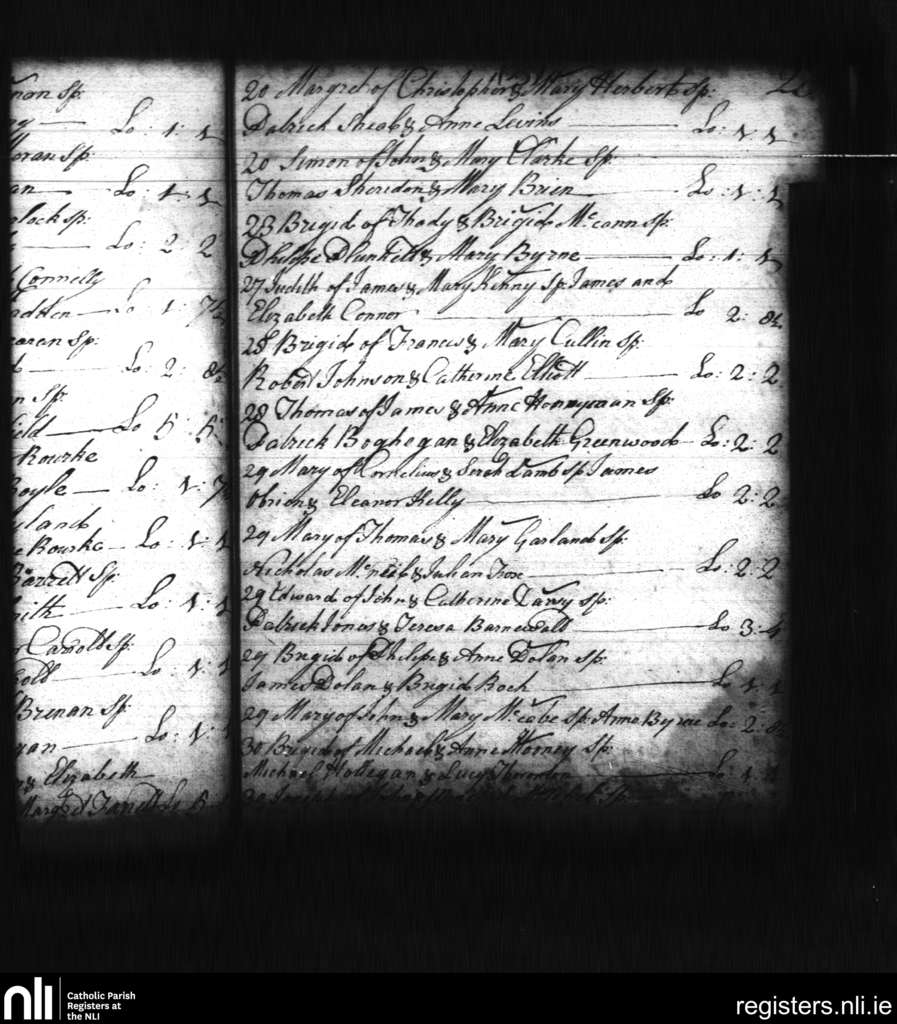 nan sp:
Lo: 1: 1
oran sp:
an Lo: 1: 1
lock sp:
Lo: 2 2
Connelly
Lo: 1: 7½
aran sp:
Lo: 2: 8½
n sp:
ield Lo 5: 5:
Rourke
Boyle Lo: 1: 7½
yland
e Rourke Lo: 1: 1
Barrett Sp:
mith Lo: 1: 1
Carroll Sp:
roll Lo: 1: 1
Brinan Sp:
nan Lo: 1: 1
& Elizabeth
Margret 5
20 Margret of Christopher & Mary Herbert Sp:
Patrick Sheal & Anne Levins Lo: 1 1
20 Simon of John & Mary Clarke Sp:
Thomas Sheridon & Mary Brien Lo: 1: 1
23 Brigid of Thady & Brigid Mc:cann sp:
Philipe Plunkett & Mary Byrne Lo: 1: 1
27 Judith of James & Mary Kenny sp: James and
Elizabeth Connor Lo 2: 8½
28 Brigid of Francis & Mary Cullin sp:
Robert Johnson & Catherine Elliott Lo: 2: 2
28 Thomas of James & Anne Honnyman Sp:
Patrick Boghegan & Elizabeth Greenwood Lo: 2: 2
29 Mary of Cornelius & Sarah Lamb sp: James
Obrien & Eleanor Kelly Lo 2: 2
29 Mary of Thomas & Mary Garland Sp:
Nicholas Mc:neil & Julian Lo: 2: 2
29 Edward of John & Catherine Darsy sp:
Patrick Jones & Teresa Barnewall Lo 3: 4
29 Brigid of Philipe & Anne Dolan sp:
James Dolan & Brigid Roch Lo 1: 1
29 Mary of John & Mary Mc:cabe Sp: Anne Byrne Lo: 2: 8½
30 Brigid of Michael & Anne Sp:
Michael & Lucy Lo: 1: 1
30 Sp:
nli
Catholic Parish
Registers at
the NLI
registers.nli.ie